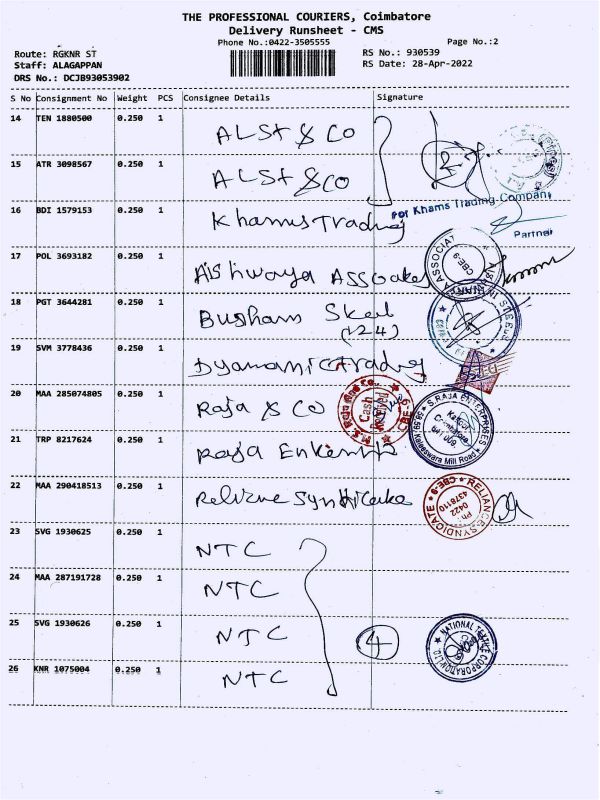 THE PROFESSIONAL COURIERS, Coimbatore
Delivery Runsheet - CMS
Phone No.:0422-3505555 Page No.:2
Route: RGKNR ST RS No.: 930539
Staff: ALAGAPPAN RS Date: 28-Apr-2022
DRS No.: DCJB93053902
S No Consignment No Weight PCS Consignee Details Signature
14 TEN 1880500 0.250 1 ALSt & CO
2
15 ATR 3098567 0.250 1 ALSt & CO
16 BDI 1579153 0.250 1 Khams Trading
For Khams Trading Company
Partner
17 POL 3693182 0.250 1 Aishwaya Assoaker
ASSOCIAT CBE.9
18 PGT 3644281 0.250 1 Busham Skel
(124)
19 SVM 3778436 0.250 1 Dyanamic Trading
20 MAA 285074805 0.250 1 Raja & Co
Cash Received CBE-9
S.RAJA ENTERPRISES
Kattoor
Coimbatore
641 009.
Kaleeswara Mill Road
21 TRP 8217624 0.250 1 Raja
22 MAA 290418513 0.250 1 Relizne Syndicake
RELIANCE SYNDICATE CBE-9
Ph:
0422
4376110
23 SVG 1930625 0.250 1 NTC
24 MAA 287191728 0.250 1 NTC
25 SVG 1930626 0.250 1 NTC
4
NATIONAL TEXTILE CORPORATION LTD
26 KNR 1075004 0.250 1 NTC